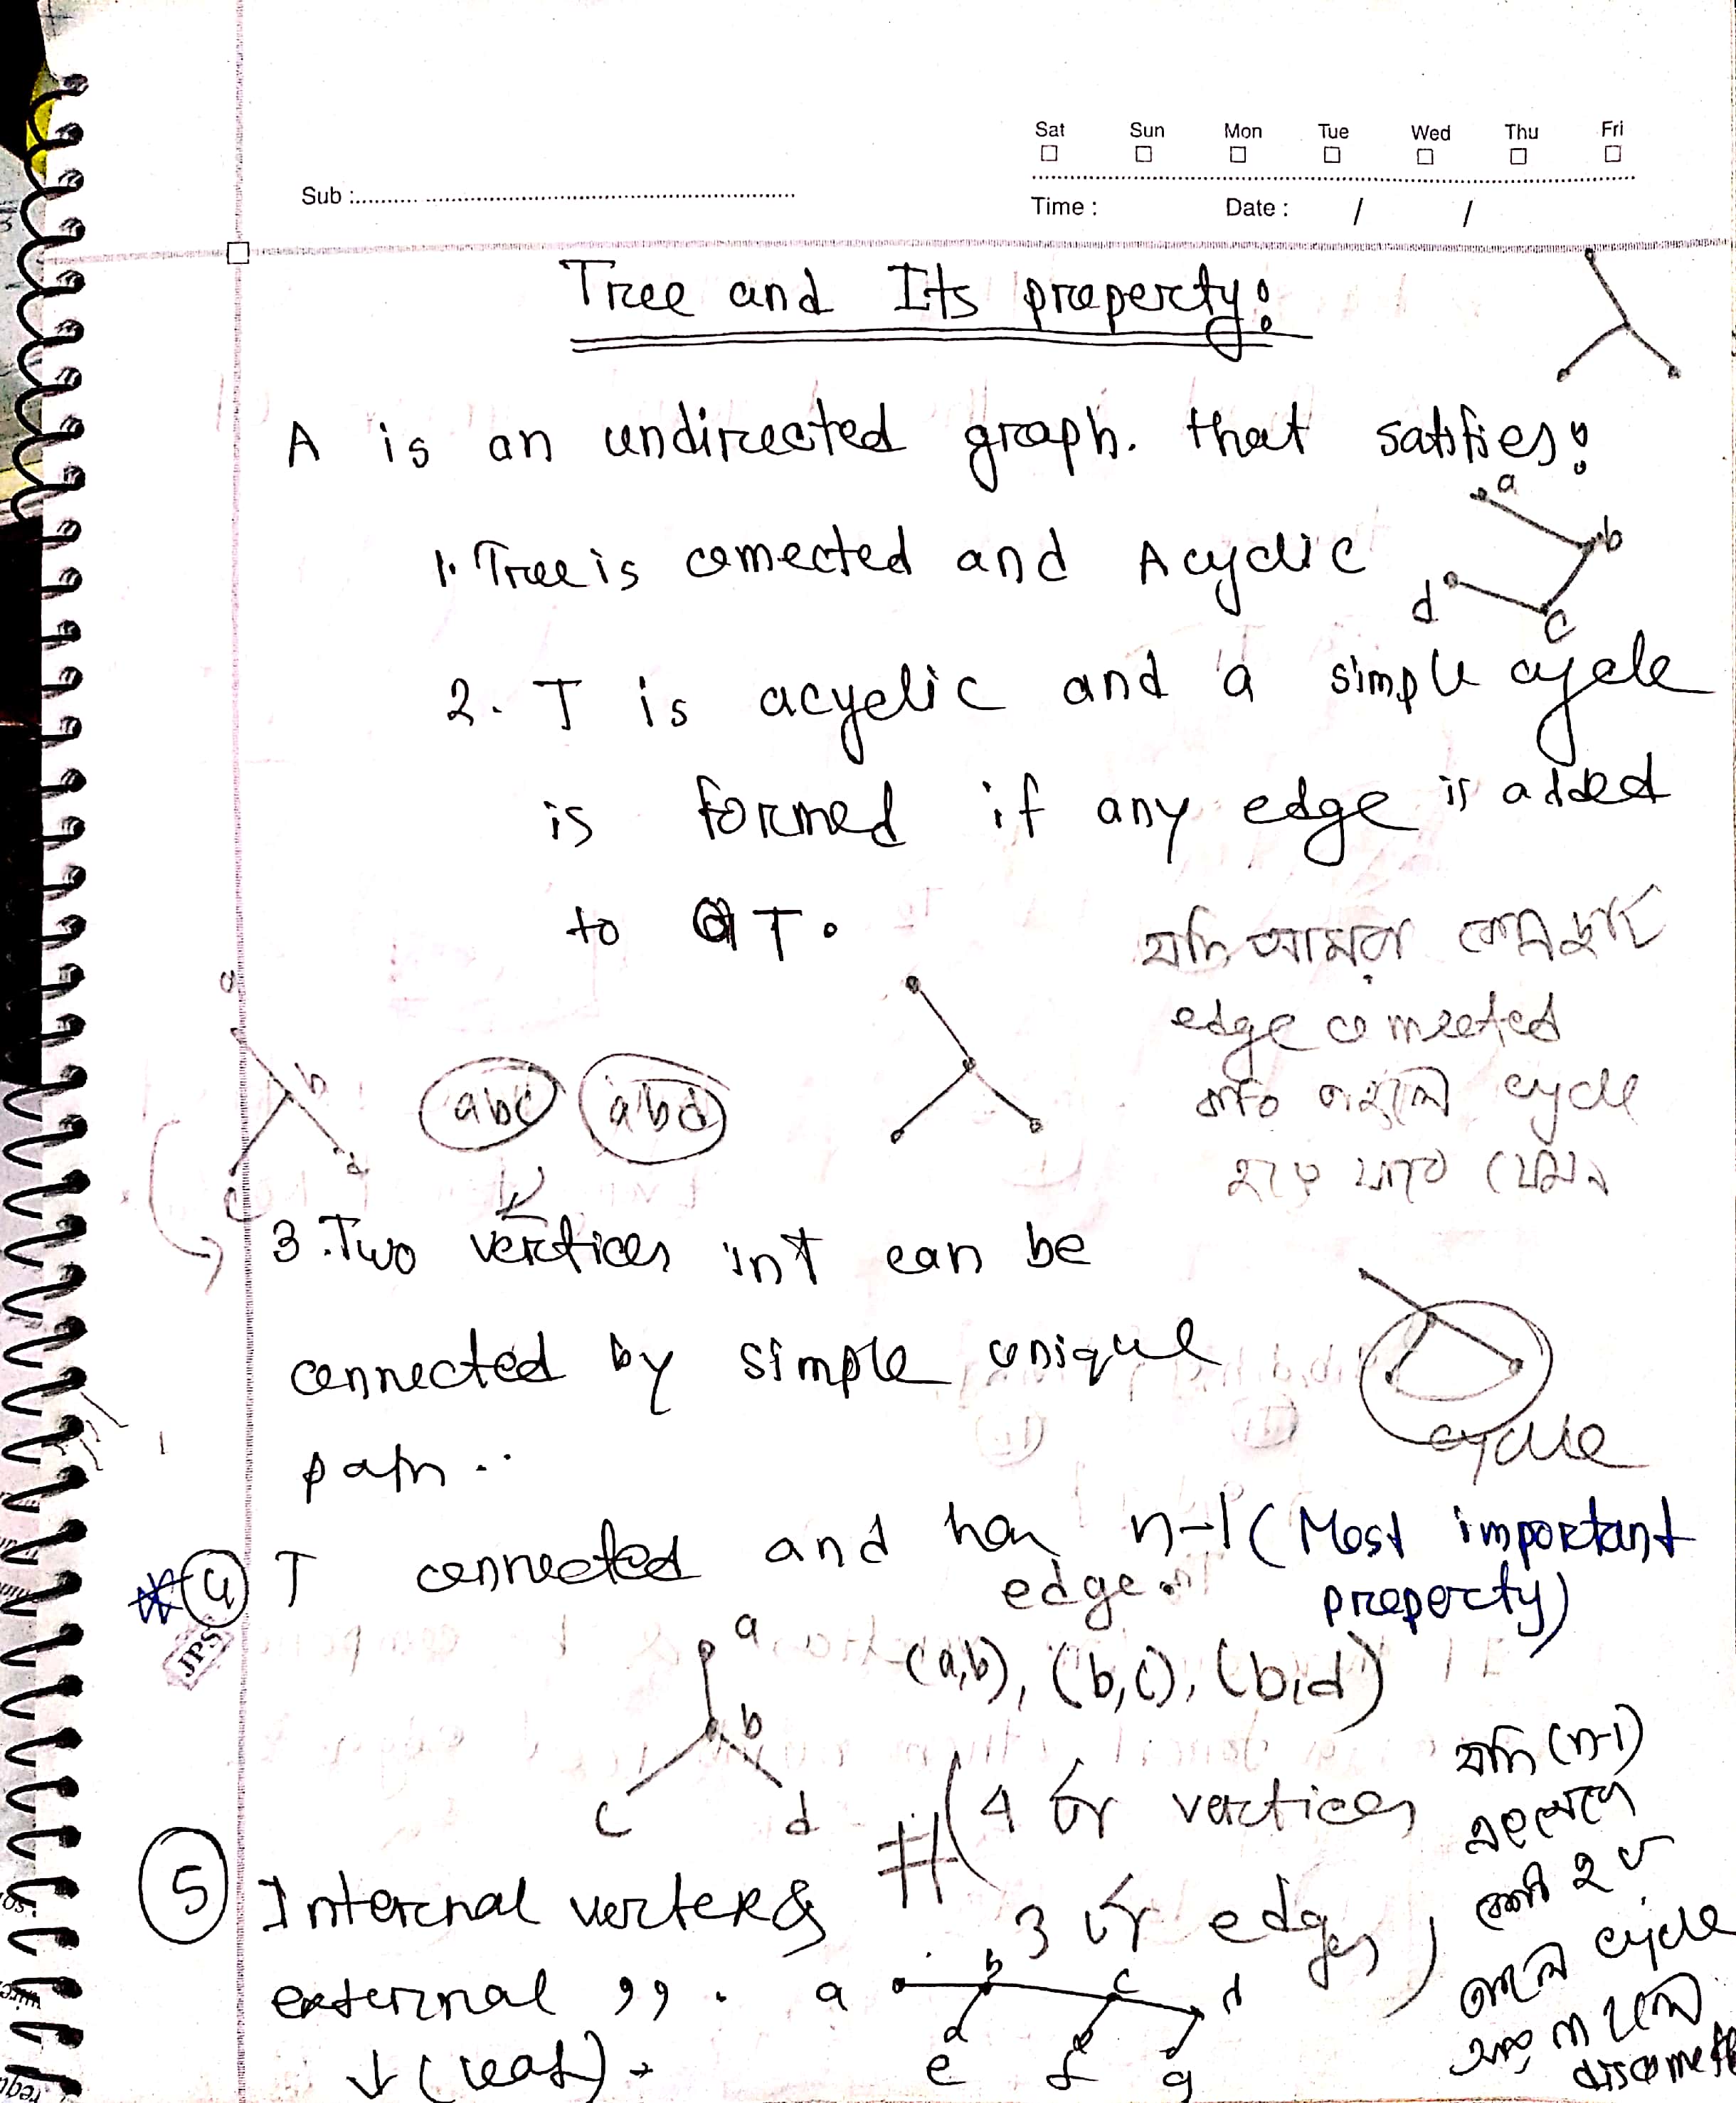 Sat Sun Mon Tue Wed Thu Fri
Sub :
Time : Date : / /
Tree and Its property:
A is an undirected graph. that satisfies:
a
1. Tree is connected and Acyclic
b
d
c
2. T is acyclic and a simple cycle
is formed if any edge is added
to T.
যদি আমরা কোন দুটি
edge connected
করি তাহলে cycle
হয়ে যাবে যেমন
a
b
c
d
abc abd
3. Two vertices in T can be
connected by simple unique
path..
cycle
4 T connected and has n-1 (Most important
edge. property)
JPS
(a,b), (b,c), (b,d)
a
b
c
d
# (4 টা vertices
3 টা edges)
যদি (n-1)
বেশি হয়
তাহলে cycle
disconnected
5 Internal vertex &
external ,, .
↓ (leaf) →
a b c d
e f g